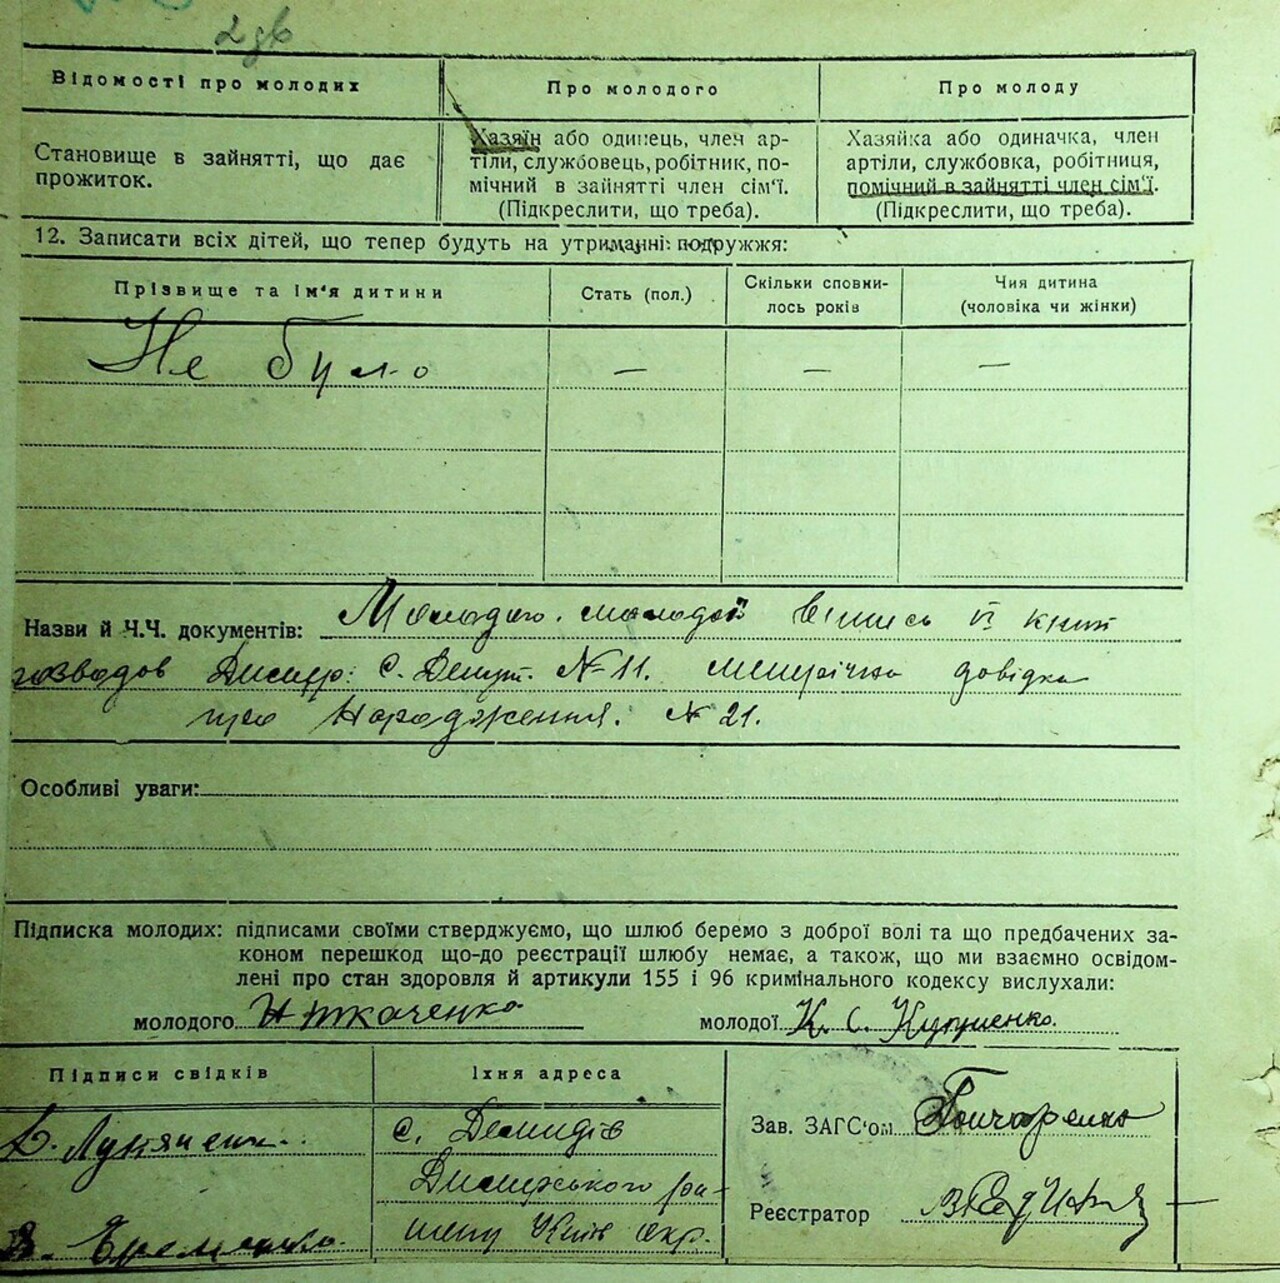 2 зв
Відомості про молодих
Про молодого
Про молоду
Становище в зайнятті, що дає
прожиток.
Хазяїн або одинець, член ар-
тіли, службовець, робітник, по-
мічний в зайнятті член сім'ї.
(Підкреслити, що треба).
Хазяйка або одиначка, член
артіли, службовка, робітниця,
помічний в зайнятті член сім'ї.
(Підкреслити, що треба).
12. Записати всіх дітей, що тепер будуть на утриманні подружжя:
Прізвище та ім'я дитини
Стать (пол.)
Скільки сповни-
лось років
Чия дитина
(чоловіка чи жінки)
Не було — — —
Назви й Ч.Ч. документів: Молодого. молодої книг
розводов Димер: с. № 11. метрична довідка
про народження. № 21.
Особливі уваги:
Підписка молодих: підписами своїми стверджуємо, що шлюб беремо з доброї волі та що предбачених за-
коном перешкод що-до реєстрації шлюбу немає, а також, що ми взаємно освідом-
лені про стан здоровля й артикули 155 і 96 кримінального кодексу вислухали:
молодого Н Ткаченко молодої К. С. Куприенко.
Підписи свідків
Їхня адреса
Лукяненко
с. Демидів
Димерського ра-
йону Київ окр.
В. Єременко.
Зав. ЗАГС'ом Гончаренко
Реєстратор